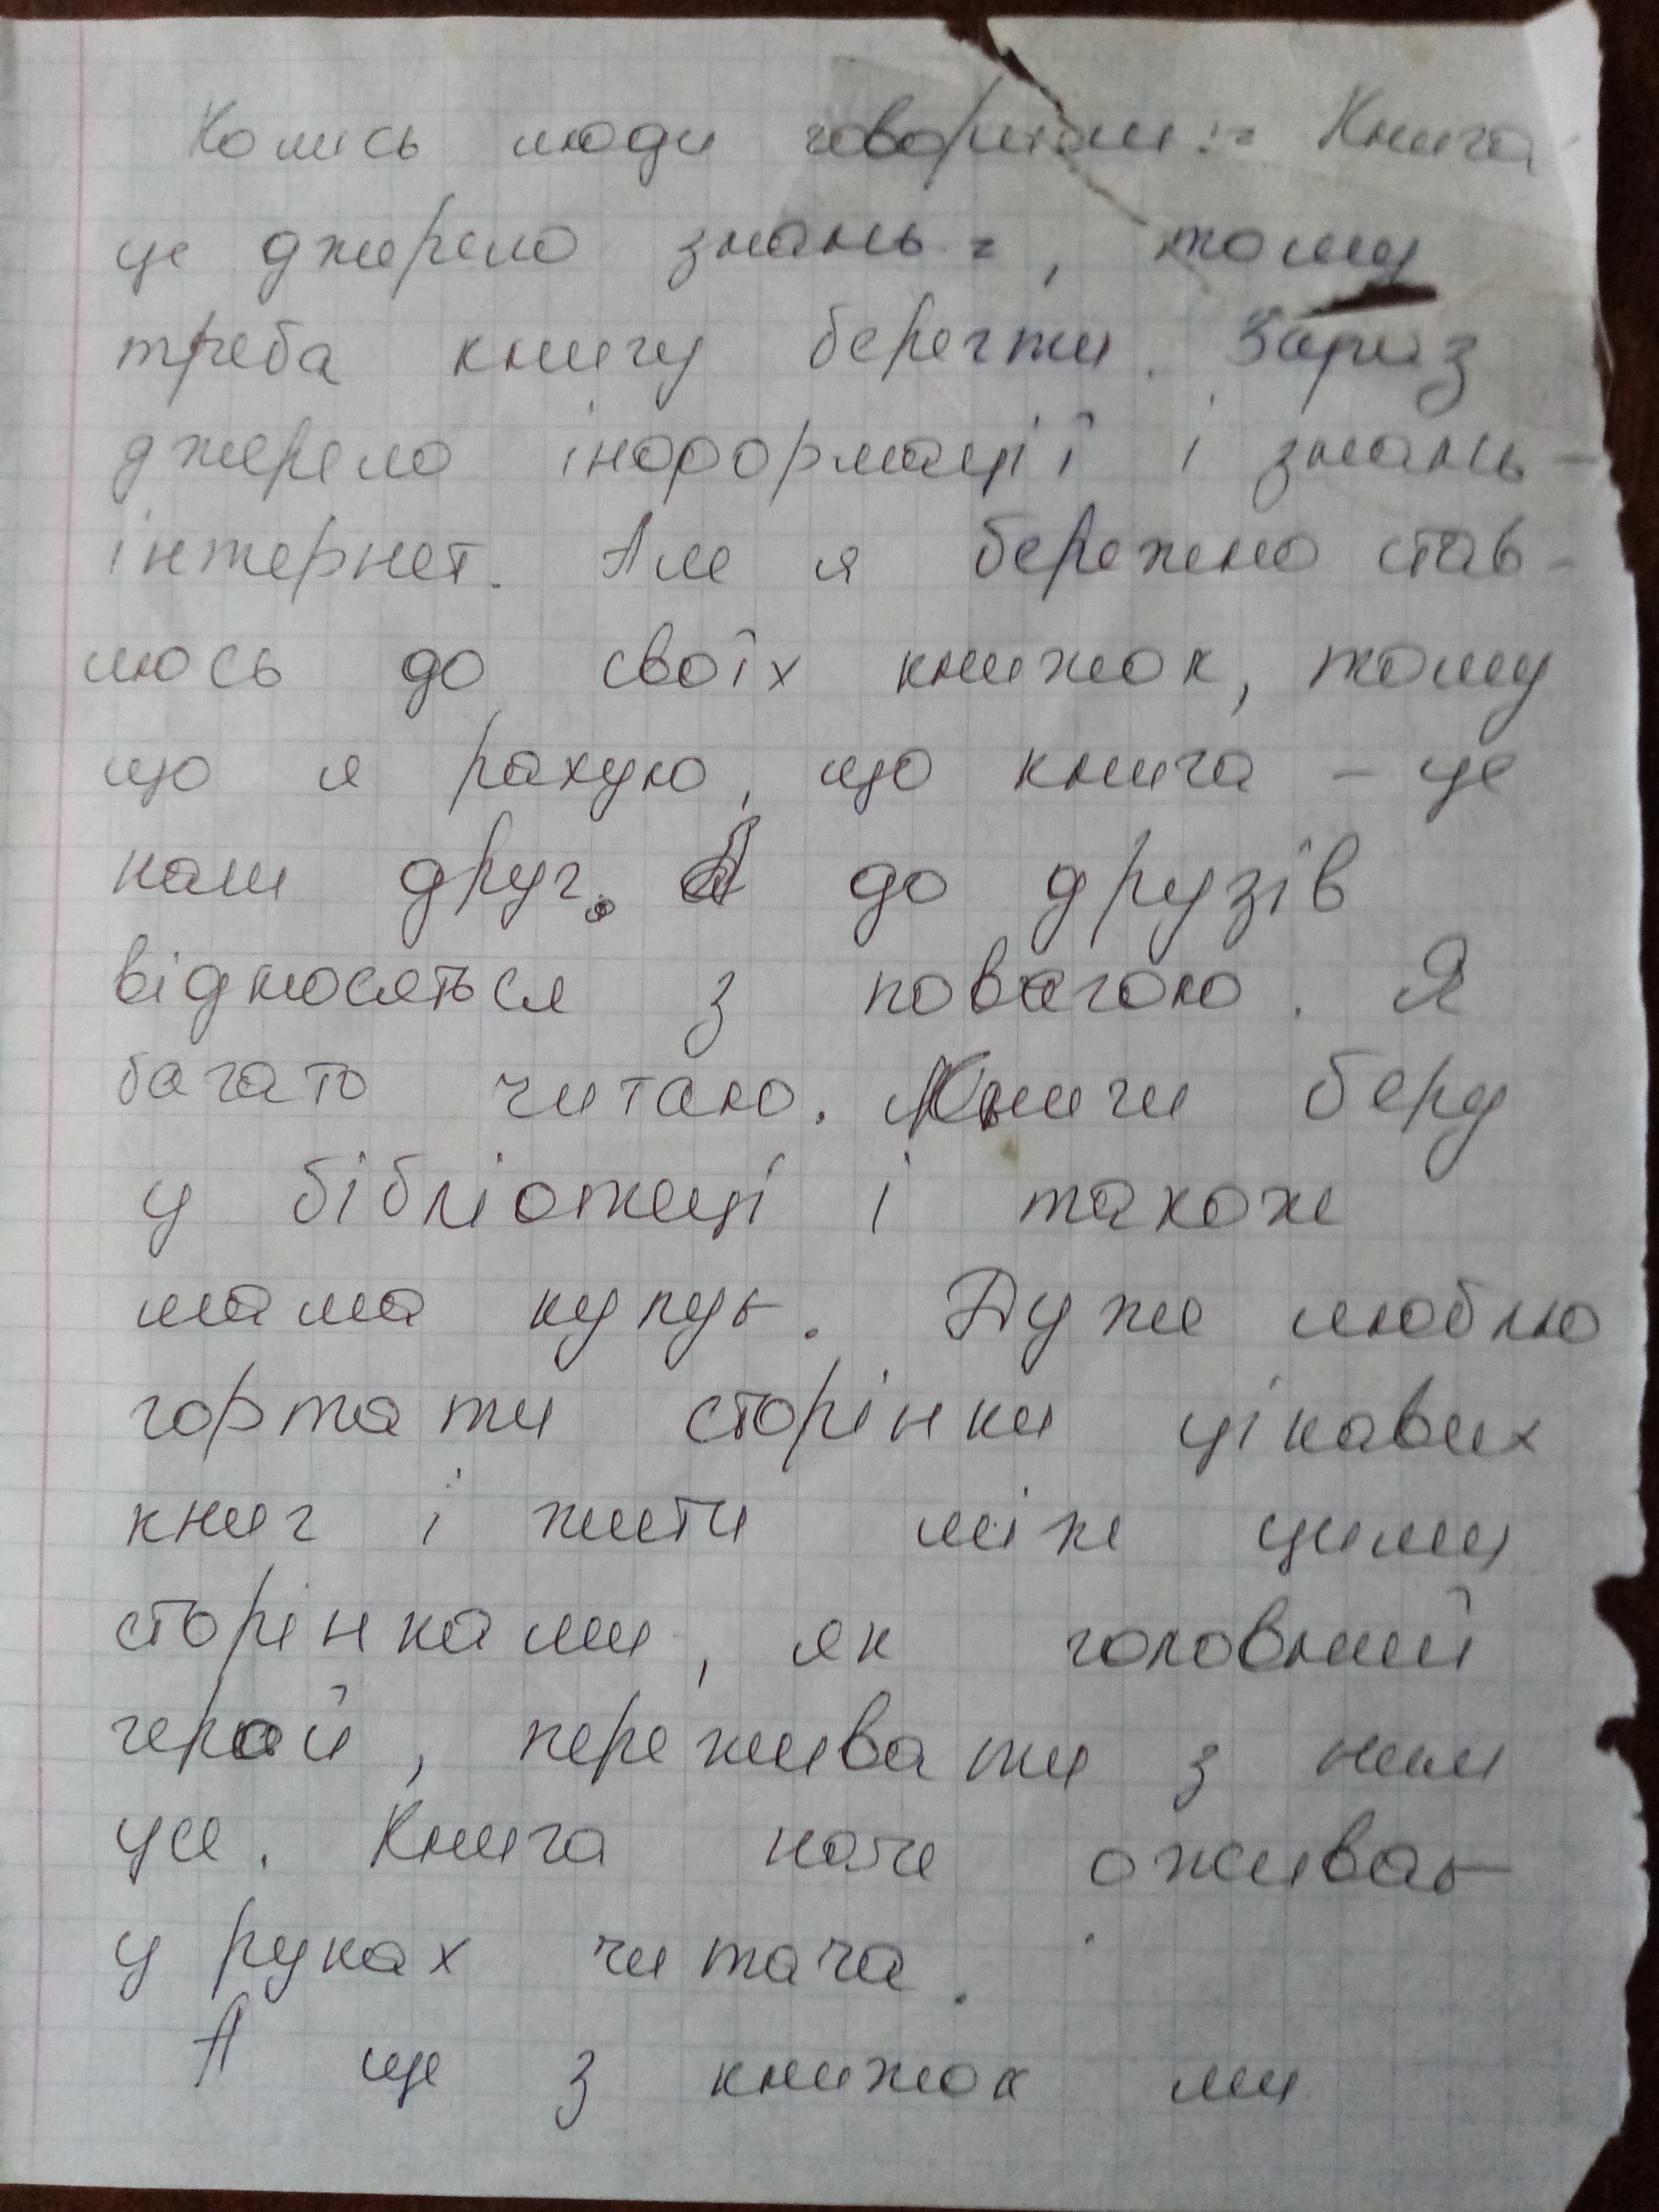 Колись люди говорили: "Книга
це джерело знань", тому
треба книгу берегти. Зараз
джерело інформації і знань –
інтернет. Але я бережно став-
люсь до своїх книжок, тому
що я рахую, що книга – це
наш друг. А до друзів
відносяться з повагою. Я
багато читаю. Книги беру
у бібліотеці і також
мама купує. Дуже люблю
гортати сторінки цікавих
книг і жити між цими
сторінками, як головний
герой, переживати з ним
усе. Книга наче оживає
у руках читача.
А ще з книжок ми